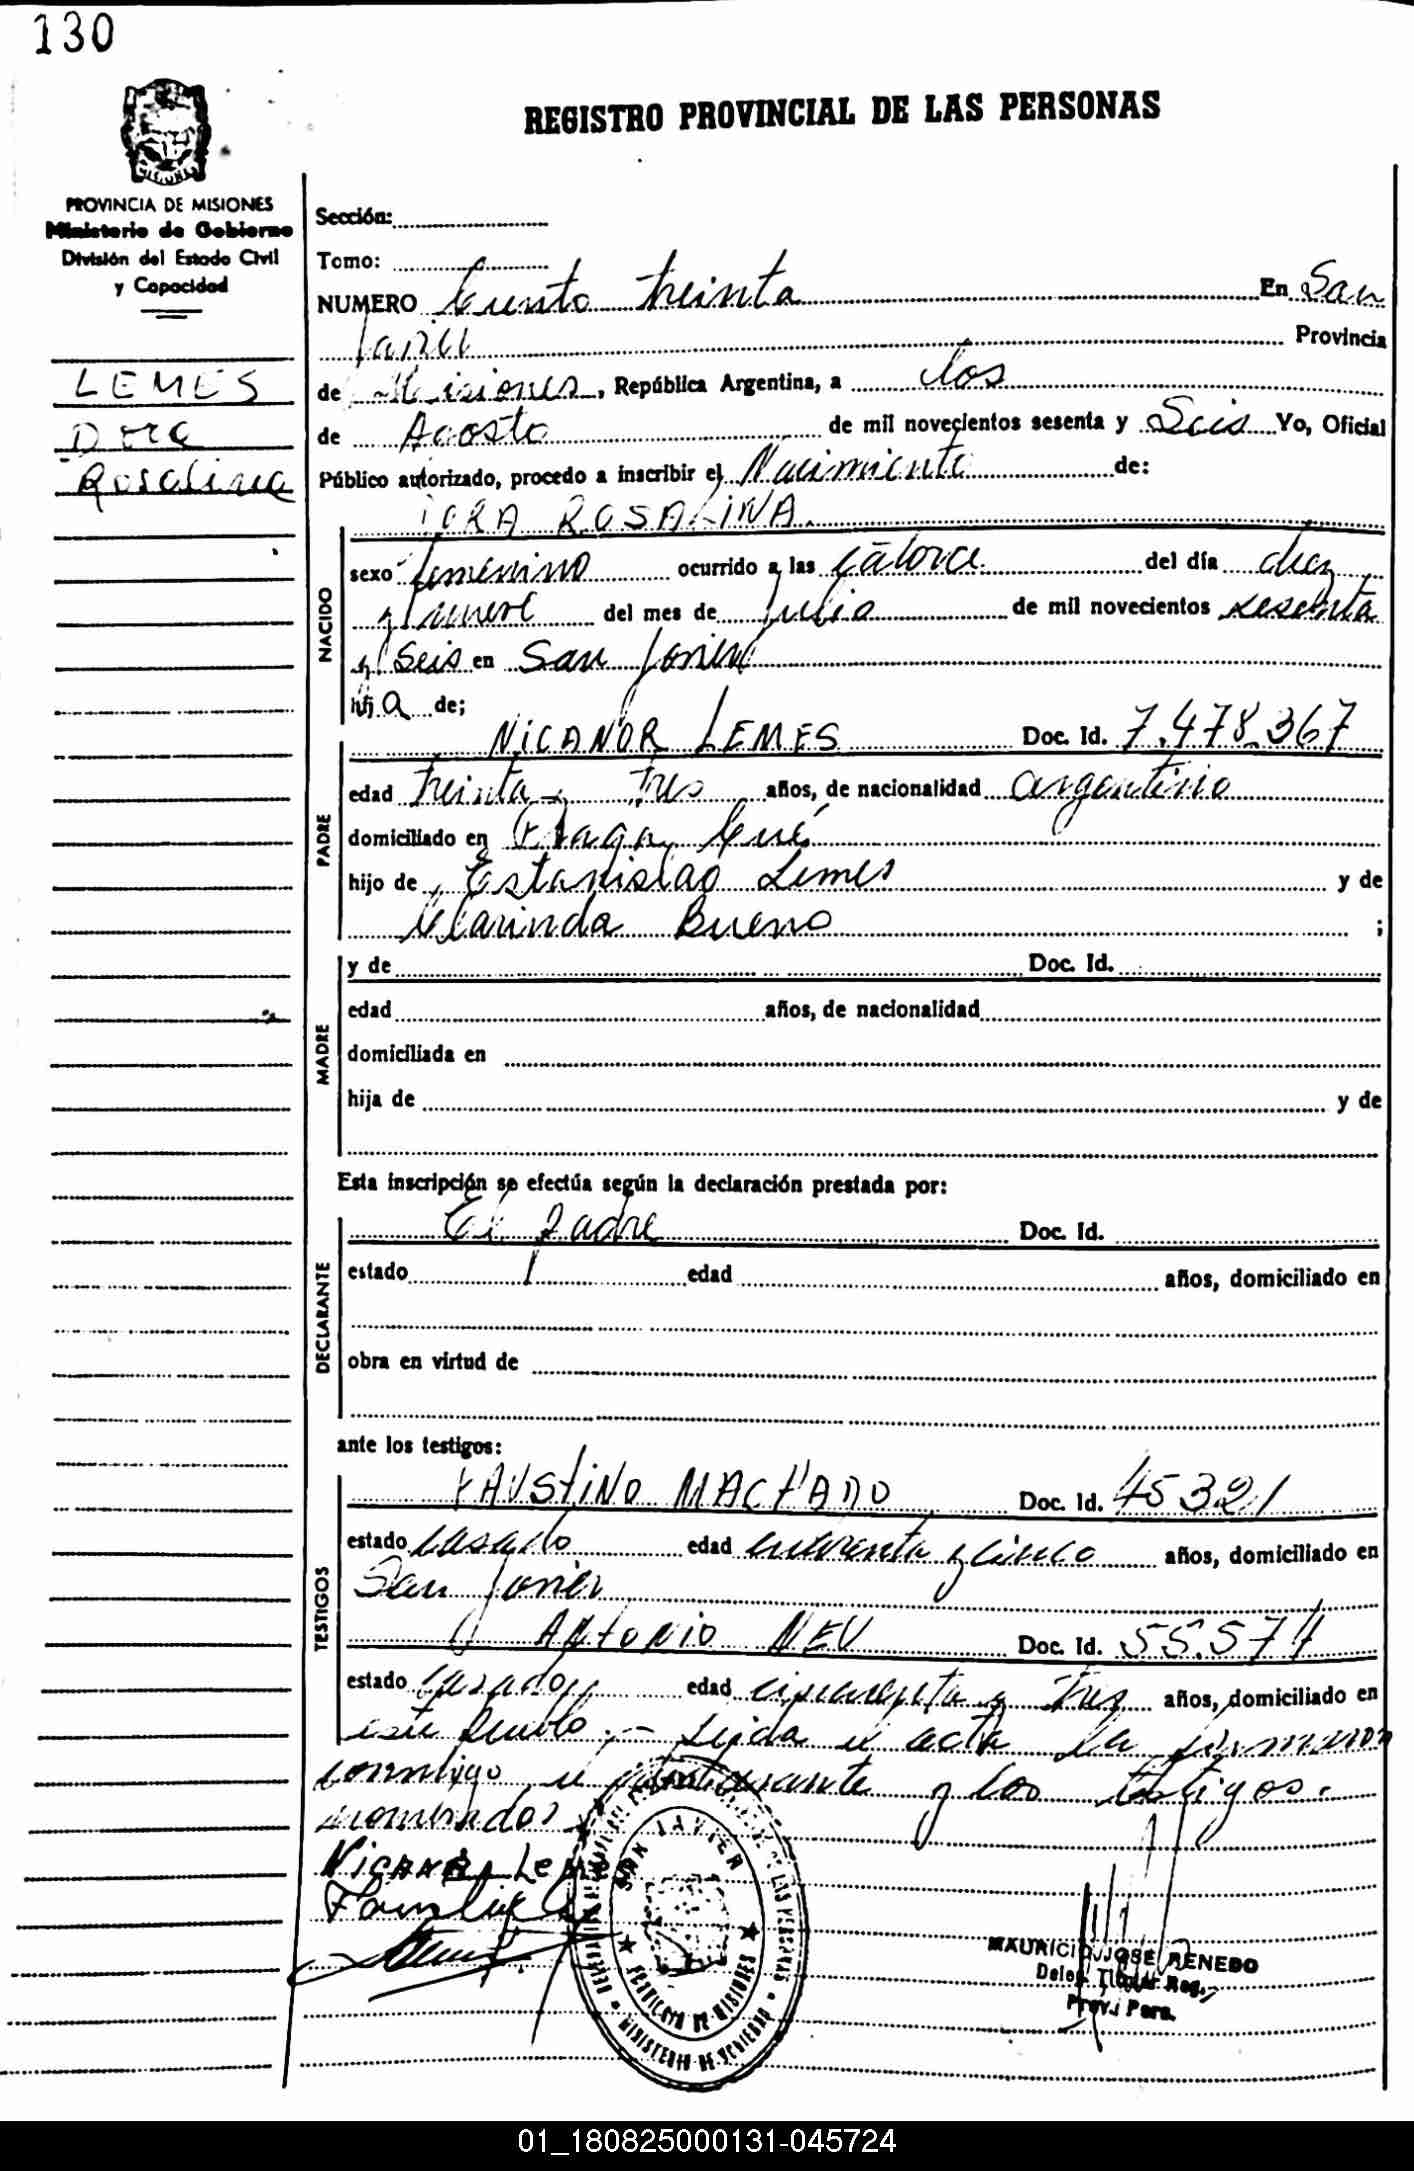 130
REGISTRO PROVINCIAL DE LAS PERSONAS
PROVINCIA DE MISIONES
Ministerio de Gobierno
División del Estado Civil
y Capacidad
LEMES
Dora
Rosalina
Sección:
Tomo:
NUMERO Ciento treinta En San
Javier Provincia
de Misiones, República Argentina, a los
de Agosto de mil novecientos sesenta y Seis Yo, Oficial
Público autorizado, procedo a inscribir el Nacimiento de:
DORA ROSALINA
NACIDO
sexo femenino ocurrido a las catorce del día diez
y nueve del mes de Julio de mil novecientos sesenta
y Seis en San Javier
hij a de;
PADRE
NICANOR LEMES Doc. Id. 7.478.367
edad treinta y tres años, de nacionalidad argentino
domiciliado en Cué
hijo de Estanislao Lemes y de
Clarinda Bueno ;
MADRE
y de Doc. Id.
edad años, de nacionalidad
domiciliada en
hija de y de
Esta inscripción se efectúa según la declaración prestada por:
DECLARANTE
El padre Doc. Id.
estado edad años, domiciliado en
obra en virtud de
ante los testigos:
TESTIGOS
FAUSTINO MACHADO Doc. Id. 45321
estado casado edad cuarenta y cinco años, domiciliado en
San Javier
ANTONIO NEU Doc. Id. 55.574
estado casado edad cincuenta y tres años, domiciliado en
este pueblo.- Leida el acta la firmaron
conmigo el declarante y los testigos
nombrados
Nicanor Lemes
SAN JAVIER
PROVINCIA DE MISIONES
MINISTERIO DE GOBIERNO
MAURICIO JOSE RENEDO
Deleg. Titular Reg.
Prov. Pers.
01_180825000131-045724